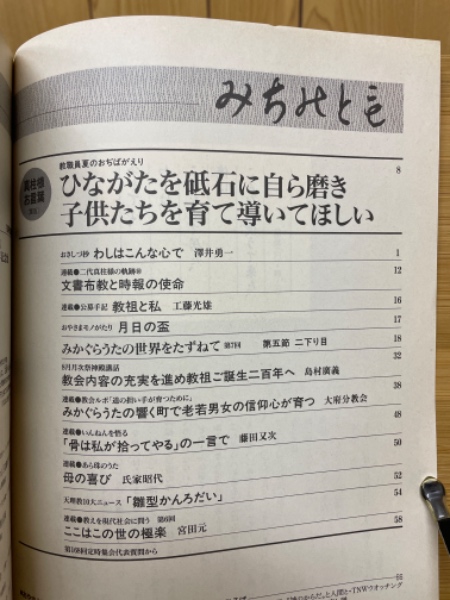 みちのとも
教職員夏のおぢばがえり
真柱様
お言葉
ひながたを砥石に自ら磨き
子供たちを育て導いてほしい
8
おさしづ抄 わしはこんな心で 澤井勇一 1
連載●二代真柱様の軌跡 12
文書布教と時報の使命
連載●公募手記 教祖と私 工藤光雄 16
おやさまモノがたり 月日の盃 17
みかぐらうたの世界をたずねて 第7回 第五節 二下り目 18
8月月次祭神殿講話 32
教会内容の充実を進め教祖ご誕生二百年へ 島村廣義
連載●教会ルポ「道の担い手が育つために」 38
みかぐらうたの響く町で老若男女の信仰心が育つ 大府分教会
連載●いんねんを悟る 48
「骨は私が拾ってやる」の一言で 藤田又次
連載●あら珠のうた 50
母の喜び 氏家昭代
天理教10大ニュース 「雛型かんろだい」 52
連載●教えを現代社会に問う 第6回 54
ここはこの世の極楽 宮田元
58
第168回定時集会代表質問から
66
TNWウオッチング